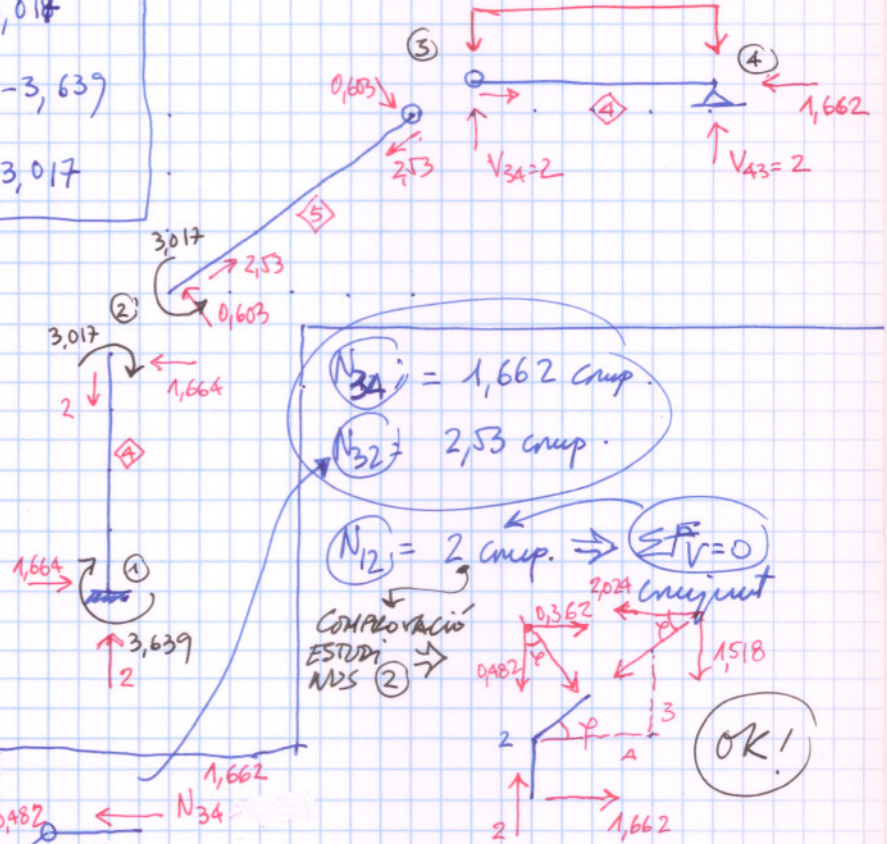 -3,639
3,017
3
4
0,603
2,53
4
1,662
V34=2
V43=2
5
3,017
2,53
0,603
2
3,017
1,664
2
4
1,664
1
3,639
2
N34 = 1,662 comp.
N32 = 2,53 comp.
N12 = 2 comp. ⇒ ΣFv=0
conjunt
COMPROVACIÓ
ESTUDI ⇒
NUS 2
0,362
2,024
0,482
φ
φ
1,518
3
2
φ
4
OK!
2
1,662
1,662
N34
0,482